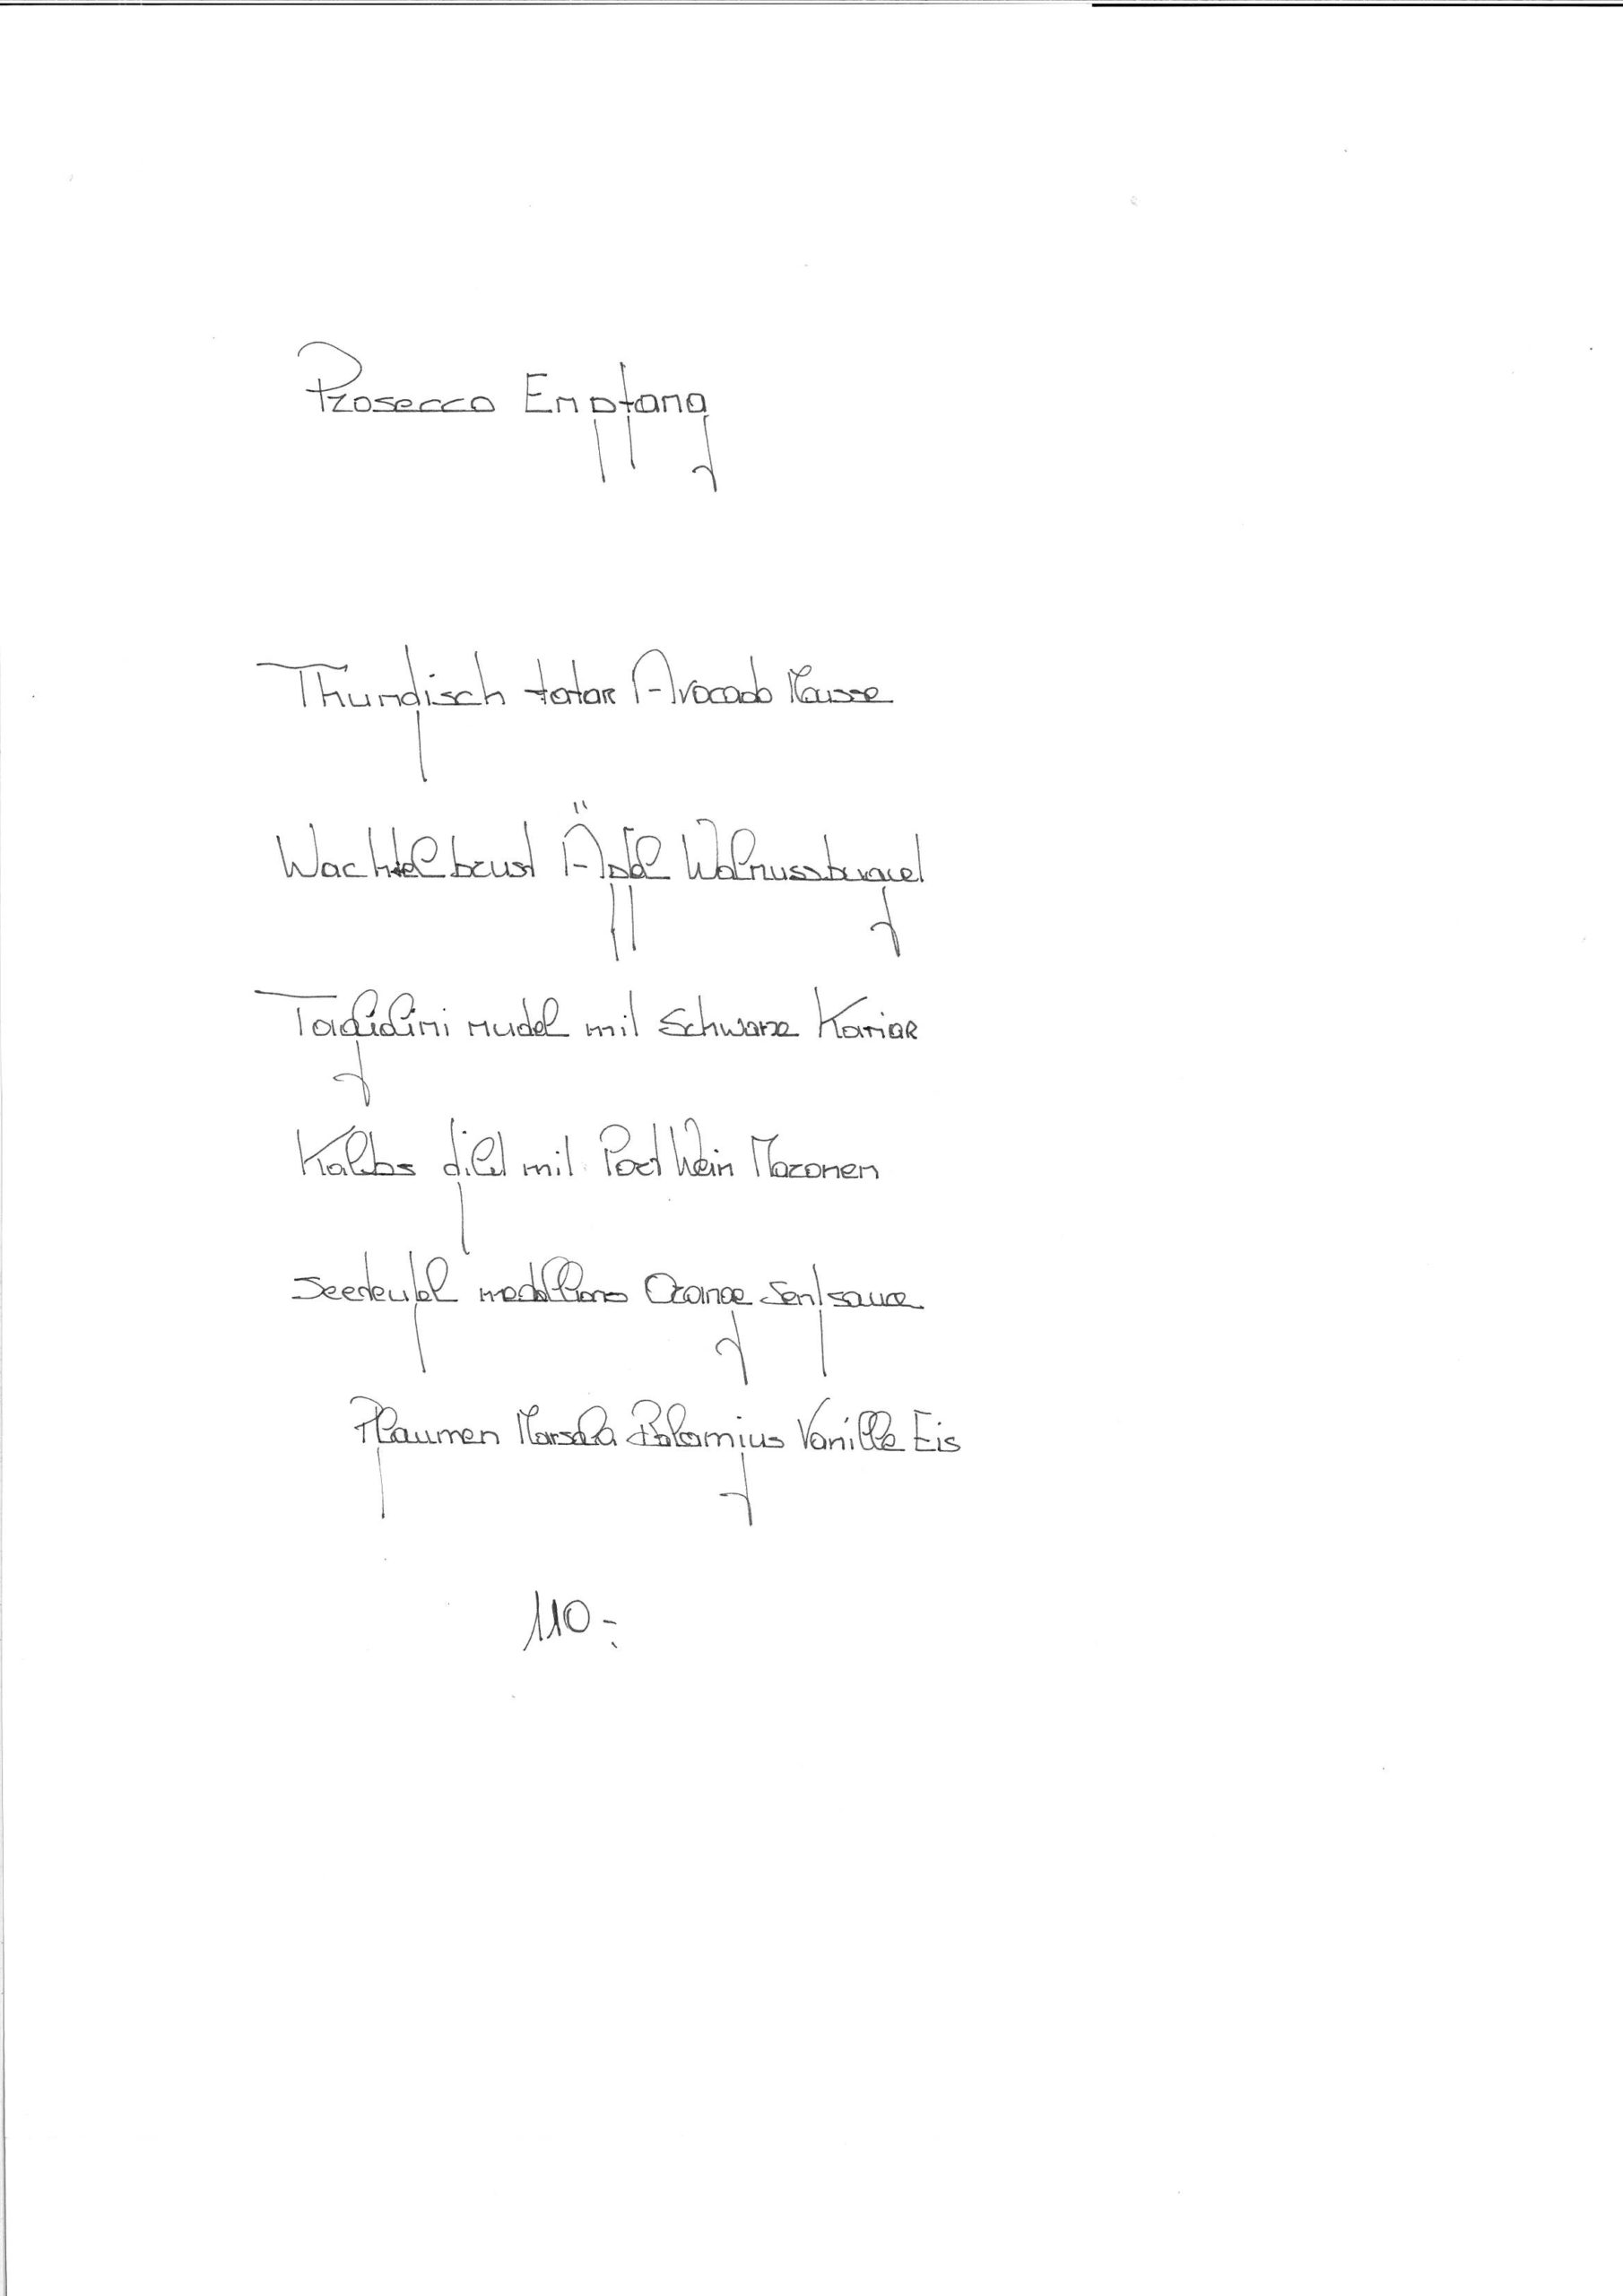 Prosecco Empfang
Thunfisch tatar Avocado Mousse
Wachtelbrust Äpfel Walnussburgul
Taglilini nudel mit Schwarze Kaviar
Kalbs filet mit Portwein Maronen
Seeteufel medallions Orange Senfsauce
Pflaumen Marsala Vanille Eis
110.-